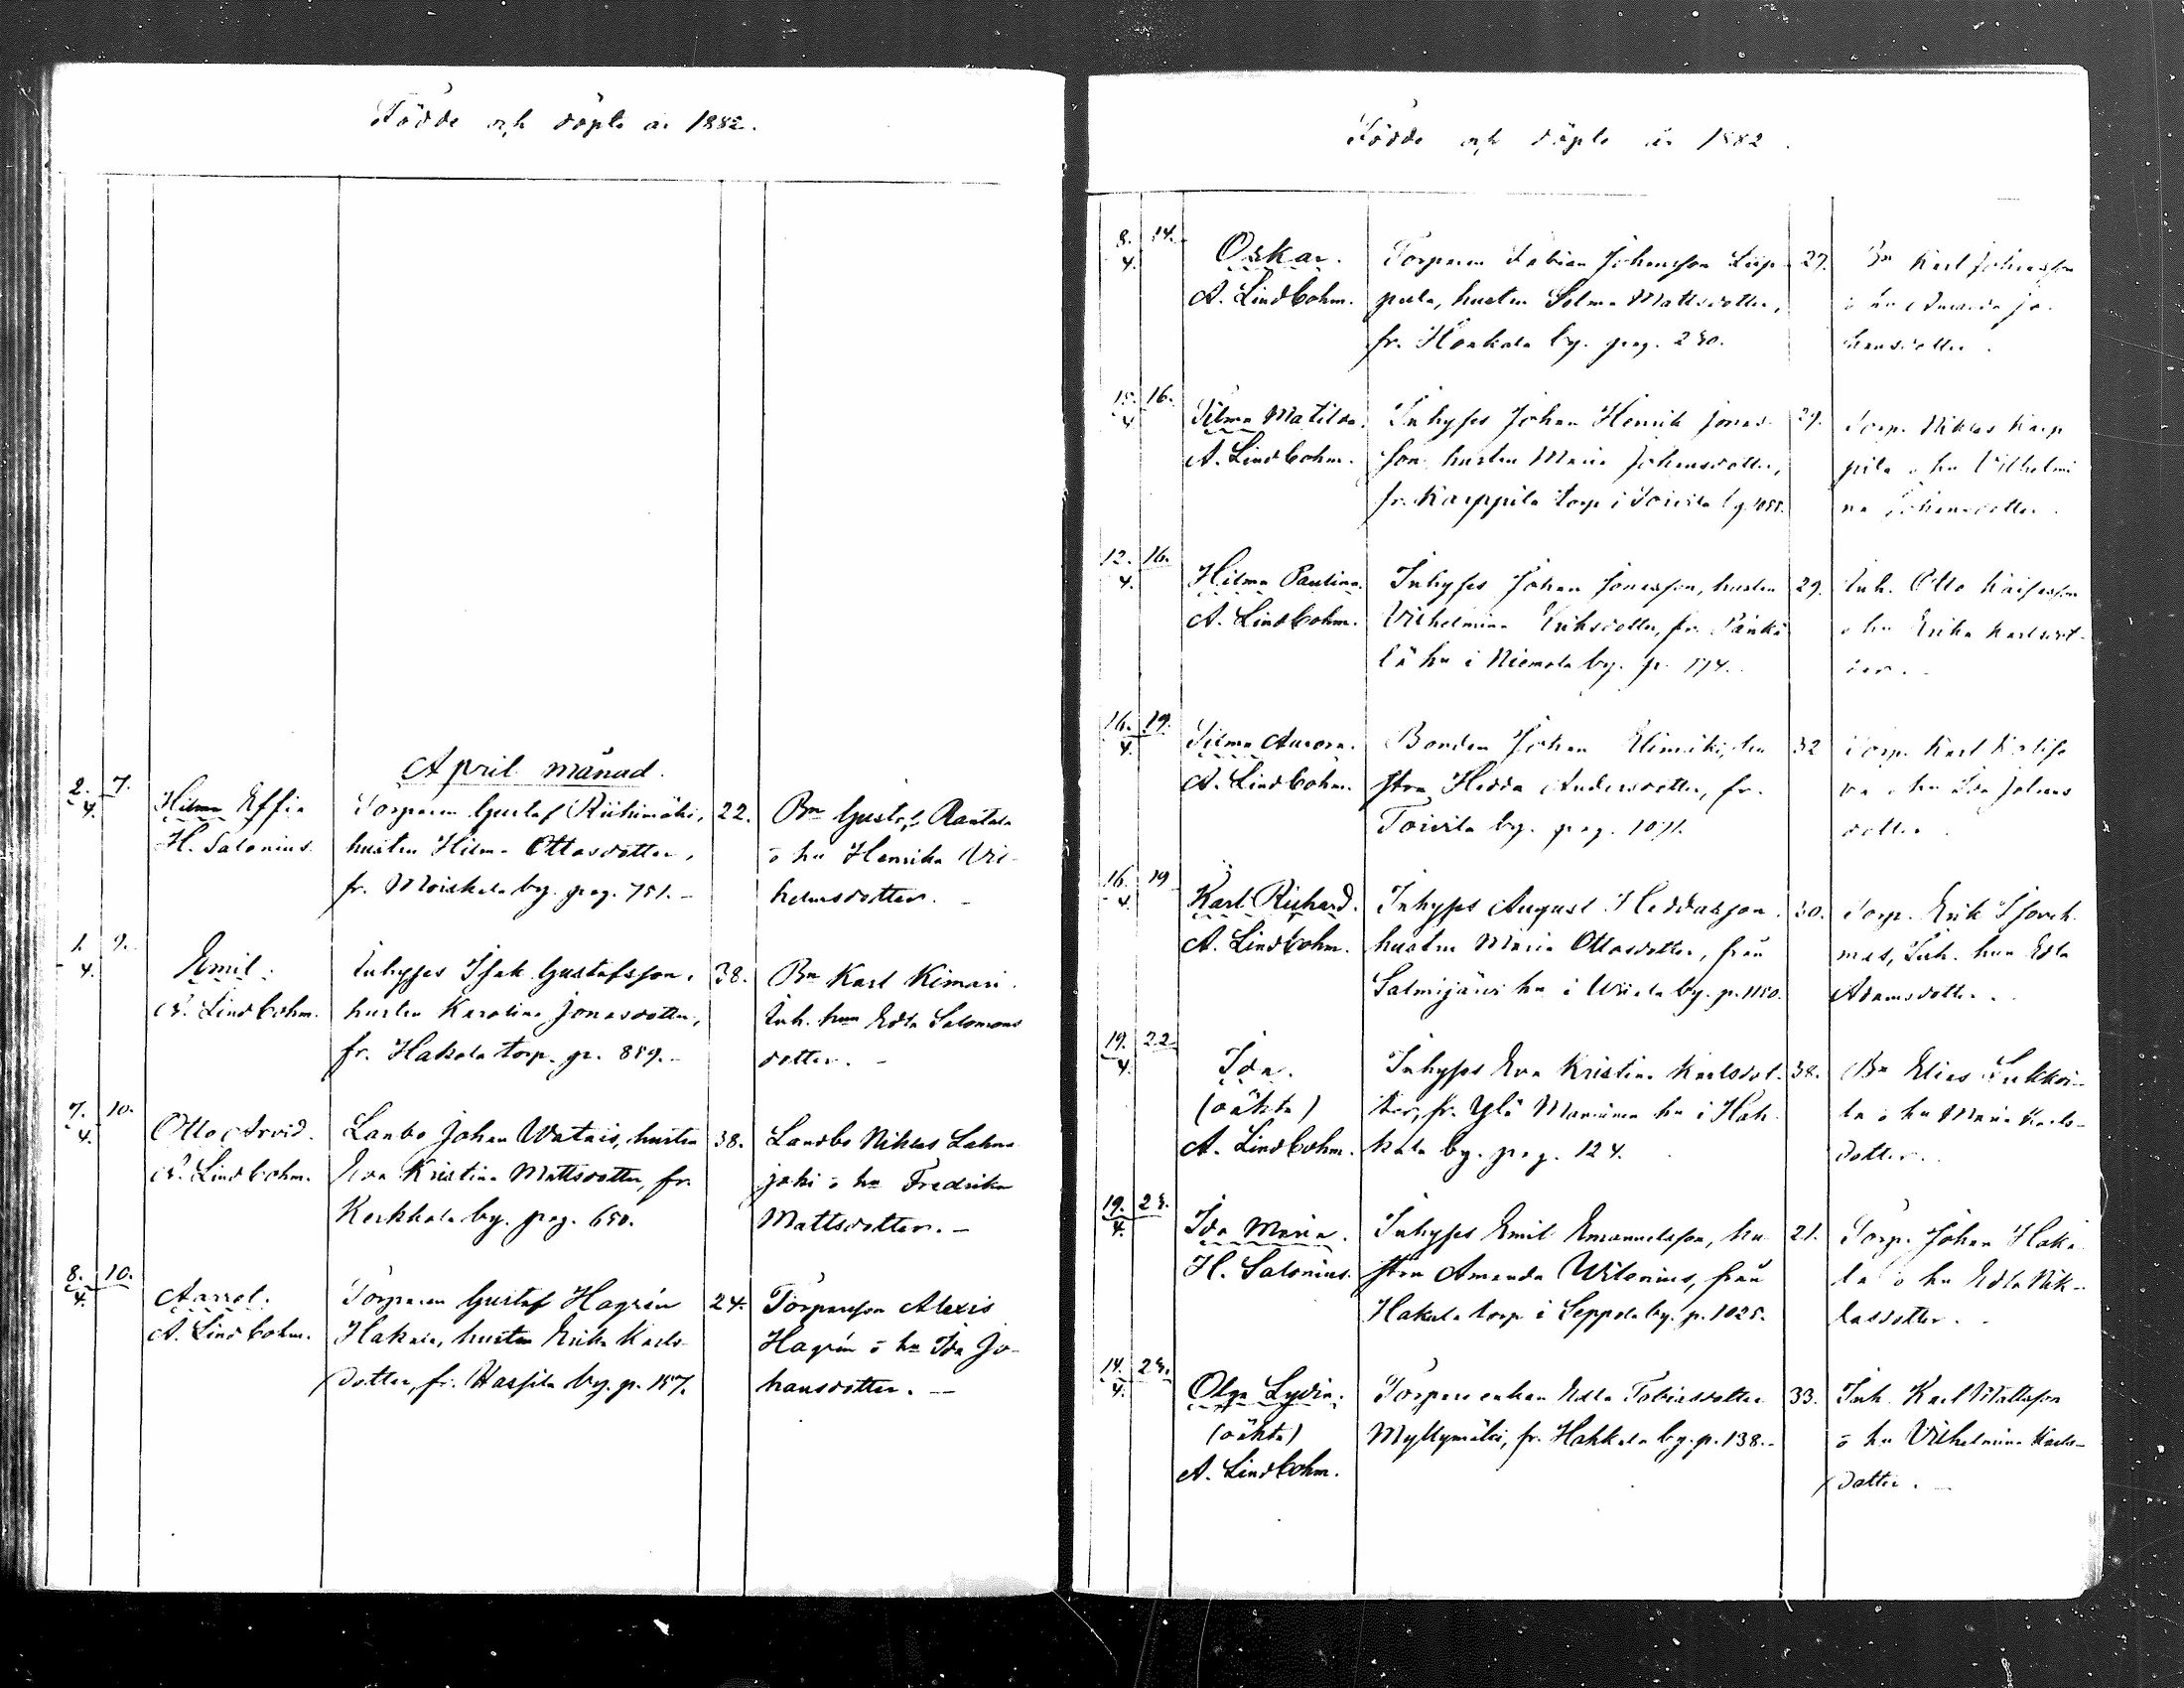 Födde och döpte år 1882.
April månad.
2. 7.
4.
Hilma Effia
H. Salonius.
Torparen Gustaf Riihimäki,
hustru Hilma Ottosdotter,
fr. Moiskala by. pag. 751. -
22.
Bn Gustaf Rantala
o hu Henrika Vil-
helmsdotter. -
1. 9.
4.
Emil.
A. Lindbohm.
Inhyses Isak Gustafsson,
hustru Karolina Jonasdotter,
fr. Hakala torp. p. 859. -
38.
Bn Karl Kimari.
Inh. hun Edla Salomons
dotter. -
7. 10.
4.
Otto Arvid.
A. Lindbohm.
Lanbo Johan Watnis, hustru
Eva Kristina Mattsdotter, fr.
Kerkkola by. pag. 650.
38.
Landbo Niklas Lahna
joki o hu Fredrika
Mattsdotter. -
8. 10.
4.
Aarrot.
A. Lindbohm.
Torparen Gustaf Hagrén
Hakala, hustru Erika Karls-
dotter, fr. by. p. 157.
24.
Torparson Alexis
Hagrén o hu Ida Jo-
hansdotter. -
Födde och döpte år 1882.
8. 14.
4.
Oskar.
A. Lindbohm.
Torparen Fabian Johansson Liip-
pula, hustru Selma Mattsdotter,
fr. Honkola by. pag. 250.
27.
Bn Karl Johansson
o hu Amanda Jo-
hansdotter.
15. 16.
4.
Hilma Matilda.
A. Lindbohm.
Inhyses Johan Henrik Jonas-
son, hustru Maria Johansdotter,
fr. Karppila torp i Toivila by. 1055.
29.
Torp. Niklas Karp
pila o hu Vilhelmi
na Johansdotter.
12. 16.
4.
Hilma Paulina.
A. Lindbohm.
Inhyses Johan Jonasson, hustru
Vilhelmina Eriksdotter, fr. Pänkä
lä hu i Niemola by. p. 174.
29.
Inh. Otto
o hu Erika Karlsdot-
ter.
16. 19.
4.
Selma Aurora.
A. Lindbohm.
Bonden Johan Elimäki, hu
stru Hedda Andersdotter, fr.
Toivila by. pag. 1071.
32
Torp. Karl
o hu Ida Johans
dotter.
16. 19
4.
Karl Richard.
A. Lindbohm.
Inhyses August Heddasson.
hustru Maria Ottosdotter, från
Salmijärvi hu i by. p. 1150.
30.
Torp. Erik
Inh. hun Edla
Adamsdotter.
19. 22
4.
Ida.
(oäkta)
A. Lindbohm.
Inhyses Eva Kristina Karlsdot-
ter, fr. Ylä hu i Hak-
kala by. pag. 124.
38.
Bn Elias
la o hu Maria Karls-
dotter.
19. 23.
4.
Ida Maria.
H. Salonius.
Inhyses Emil Emanuelsson, hu
stru Amanda Wilenius, från
Hakala torp i Seppola by. p. 1025.
21.
Torp. Johan Haka
la o hu Edla Nik-
lasdotter.
14. 23.
4.
Olga Lydia.
(oäkta)
A. Lindbohm.
Torpare enkan Edla Tobiasdotter
Myllymäki, fr. Hakkala by. p. 138. -
33.
Inh. Karl Mattsson
o hu Vilhelmina Karls-
dotter. -